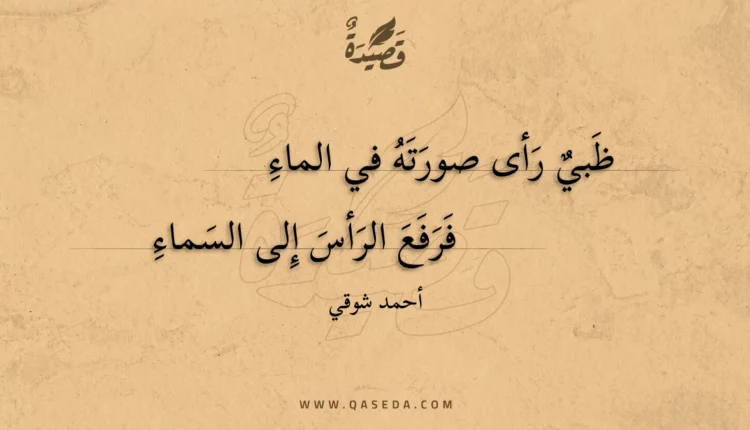 قَصِيْدَةٌ
ظَبيٌ رَأى صورَتَهُ في الماءِ
فَرَفَعَ الرَأسَ إِلى السَماءِ
أحمد شوقي
WWW.QASEDA.COM